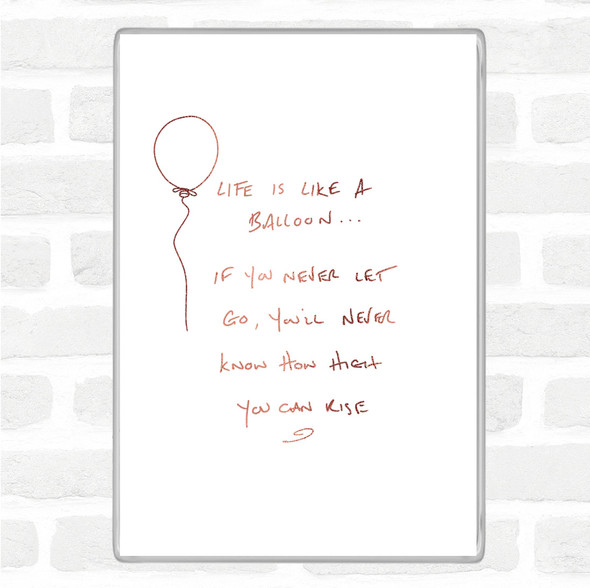 LIFE IS LIKE A
BALLOON...
IF YOU NEVER LET
GO, YOU'LL NEVER
KNOW HOW HIGH
YOU CAN RISE